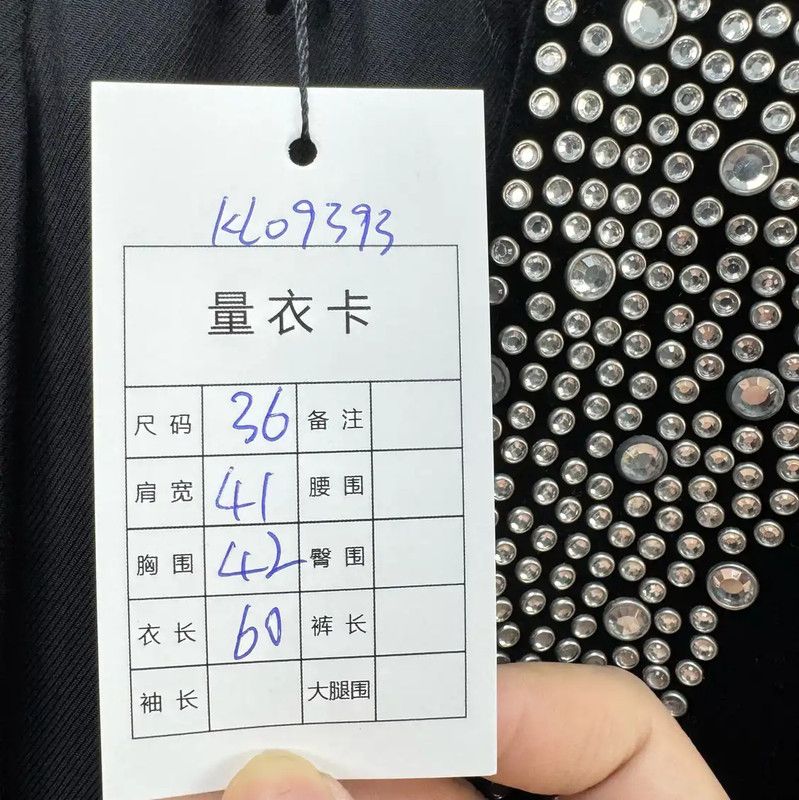 KL09393
量衣卡
尺码 36 备注
肩宽 41 腰围
胸围 42 臀围
衣长 60 裤长
袖长 大腿围